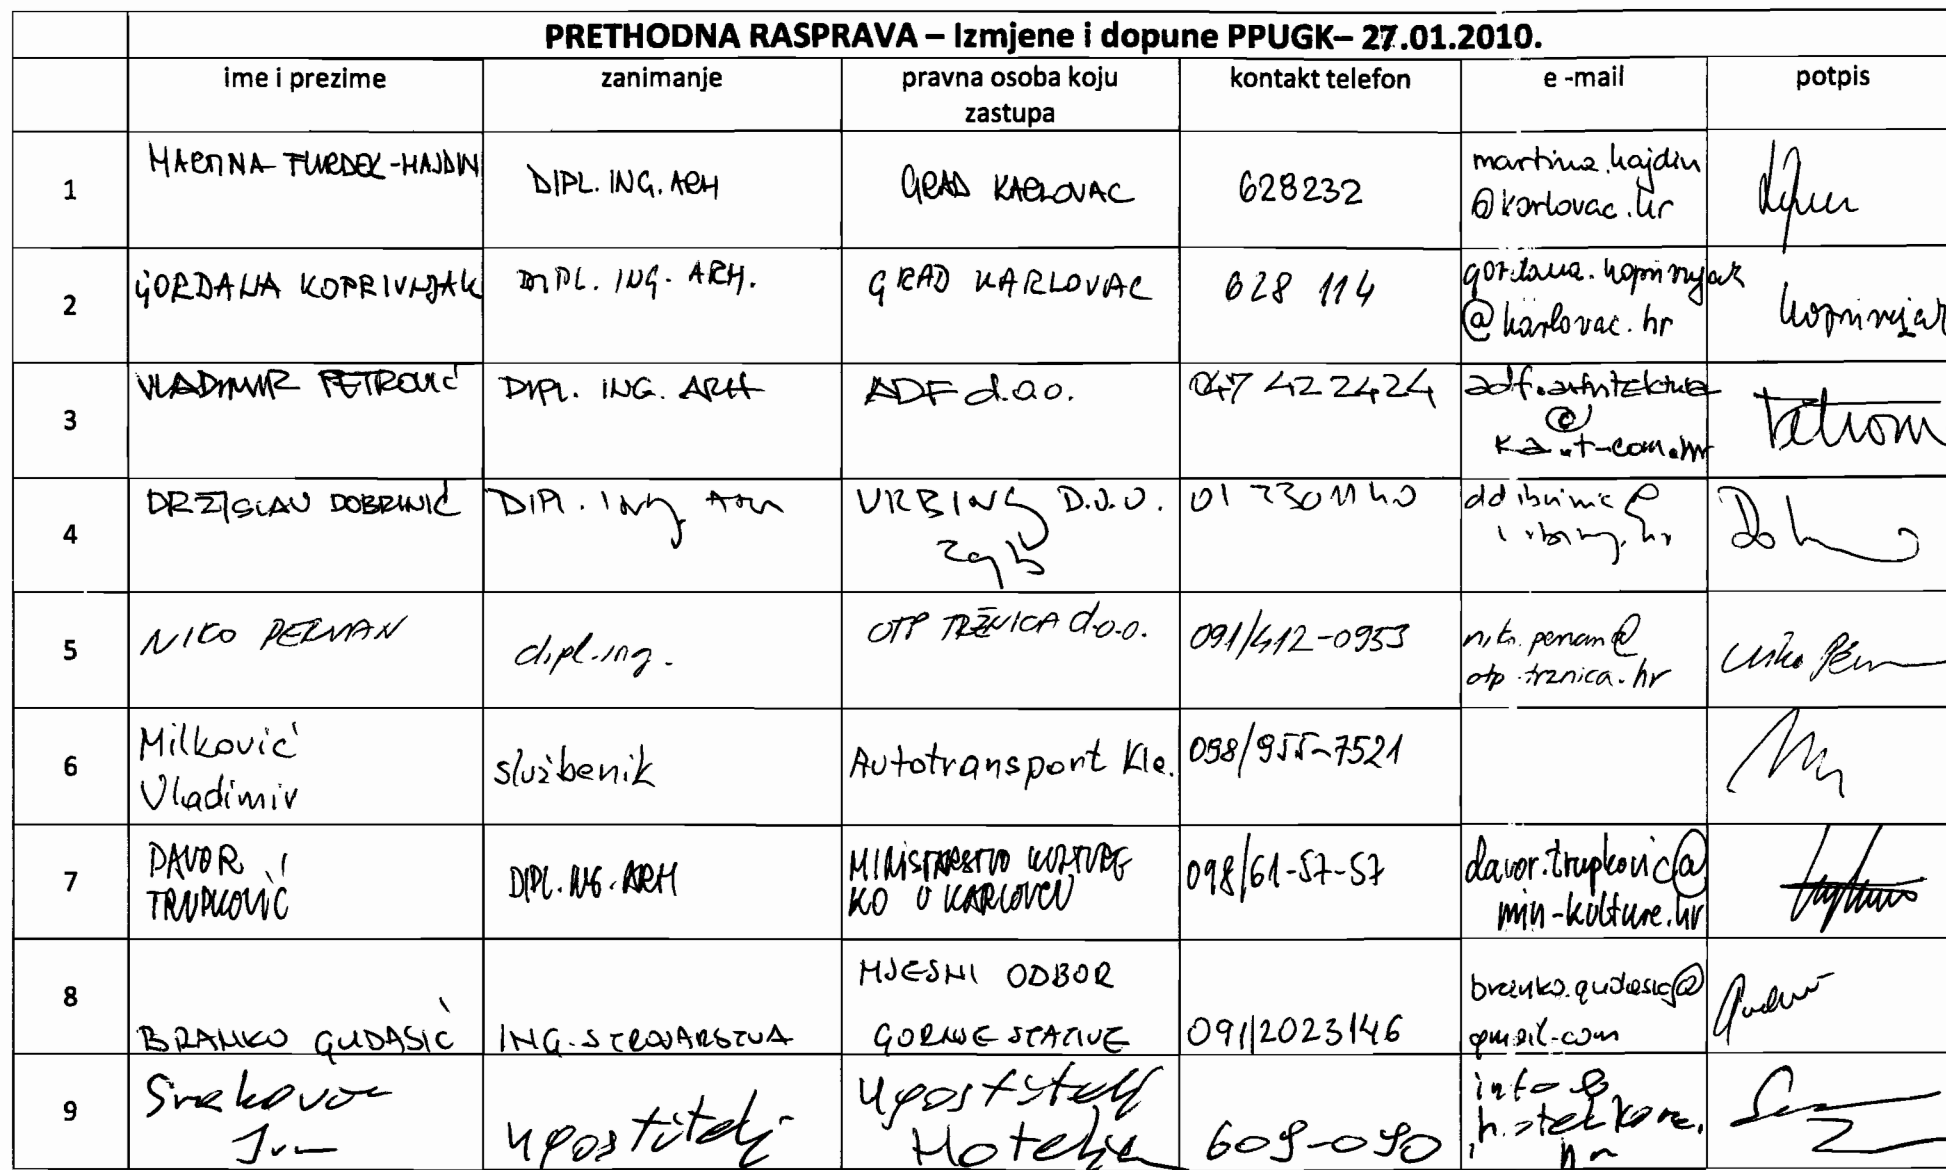 PRETHODNA RASPRAVA – Izmjene i dopune PPUGK– 27.01.2010.
ime i prezime zanimanje pravna osoba koju zastupa kontakt telefon e -mail potpis
1 MARTINA FURDEK-HAJDIN DIPL. ING. ARH GRAD KARLOVAC 628232 martina.hajdin
@karlovac.hr
2 GORDANA KOPRIVNJAK DIPL. ING. ARH. GRAD KARLOVAC 628 114 gordana.koprivnjak
@karlovac.hr koprivnjak
3 VLADIMIR PETROVIĆ DIPL. ING. ARH ADF d.o.o. 047 422424 adf.arhitektura
@
ka.t-com.hr
4 DRŽISLAV DOBRINIĆ DIPL. ING. ARH URBING D.O.O. 01 2301140
5 NIKO PERVAN dipl.ing. OTP TRŽNICA d.o.o. 091/412-0953 niko.pervan@
otp-trznica.hr
6 Milković
Vladimir službenik Autotransport Klc. 098/955-7521
7 DAVOR
TRUPKOVIĆ DIPL. ING. ARH MINISTARSTVO KULTURE
KO U KARLOVCU 098/61-57-57 davor.trupkovic@
min-kulture.hr
8 MJESNI ODBOR
BRANKO GUDASIĆ ING. STROJARSTVA GORNJE STATIVE 091/2023146 branko.gudasic@
gmail.com
9 ugostitelj
ugostitelj 609-090 info@
hr